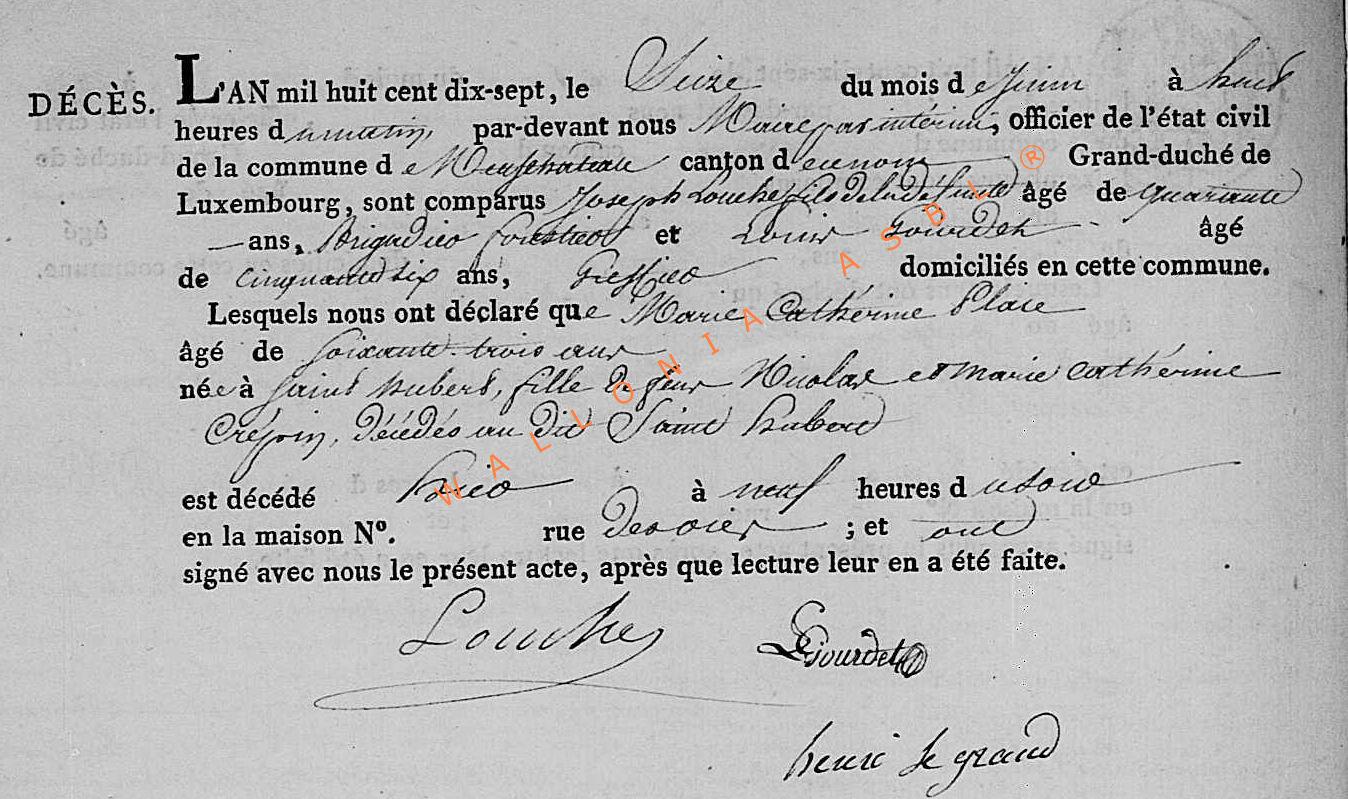 DÉCÈS. L'AN mil huit cent dix-sept, le Seize du mois de Juin à huit
heures du matin, par-devant nous Maire par intérim, officier de l'état civil
de la commune de Neufchateau canton de ce nom Grand-duché de
Luxembourg, sont comparus Joseph Louche fils de la défunte âgé de quarante
ans, Brigadier forestier et Louis Gourdet âgé
de cinquante six ans, Greffier domiciliés en cette commune.
Lesquels nous ont déclaré que Marie Cathérine Plaie
âgé de soixante-trois ans
née à Saint hubert, fille de feux Nicolas et marie cathérine
Crépin, décédés au dit Saint hubert
est décédé hier à neuf heures du soir
en la maison N°. rue ; et ont
signé avec nous le présent acte, après que lecture leur en a été faite.
Louche
Gourdet
henri le grand
WALLONIA ASBL ®